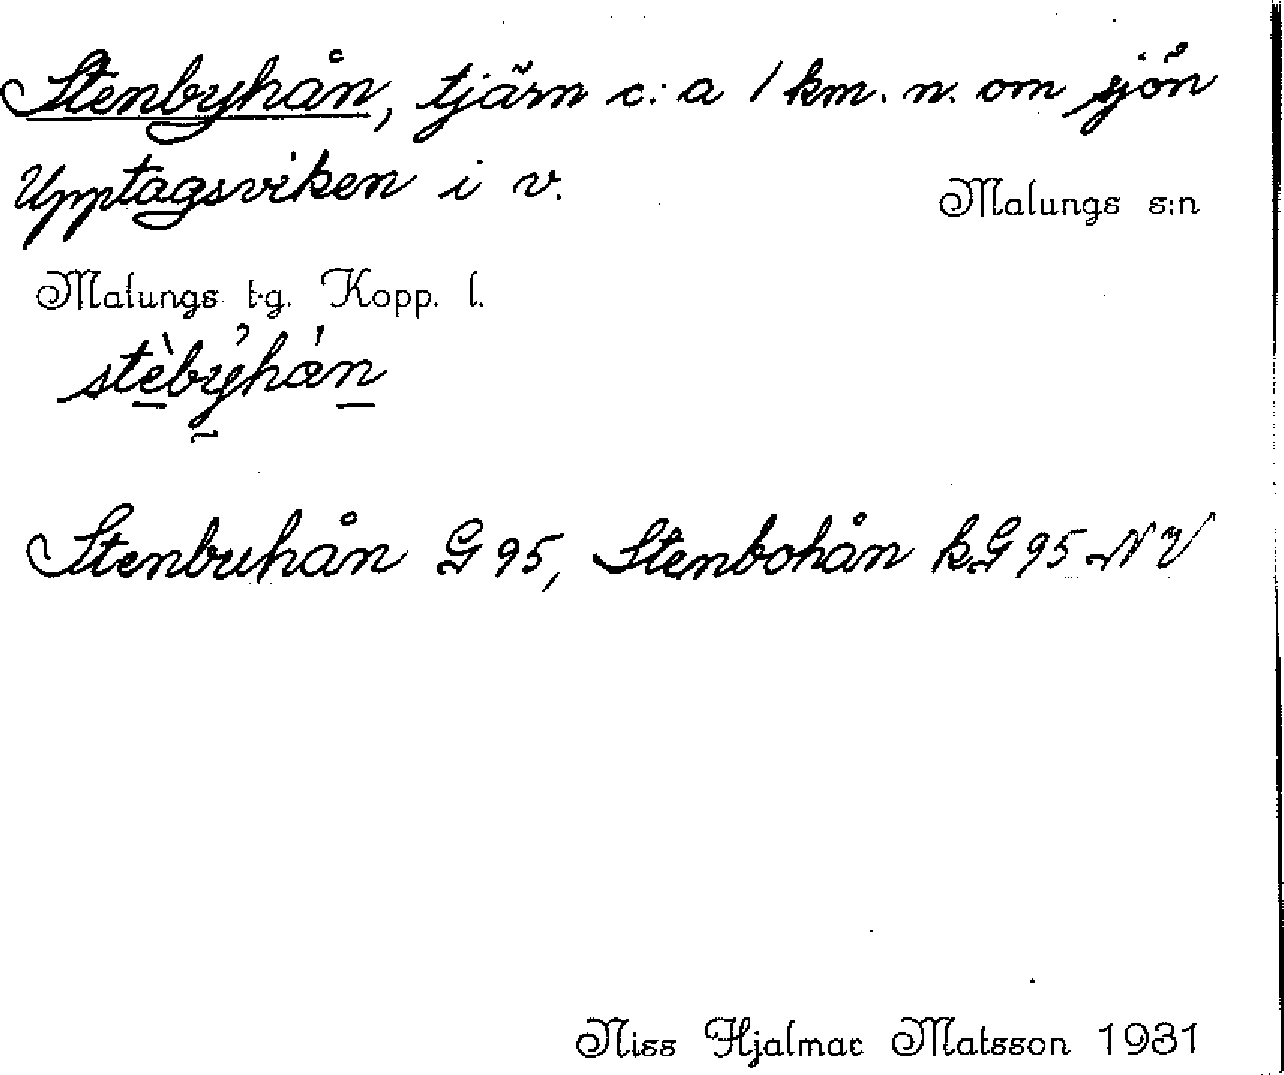 Stenbyhån, tjärn c:a 1 km. n. om sjön
Upptagsviken i v.
Malungs s:n
Malungs t-g. Kopp. l.
stèbýhån
Stenbuhån G 95, Stenbohån kG 95 NV
Niss Hjalmar Matsson 1931